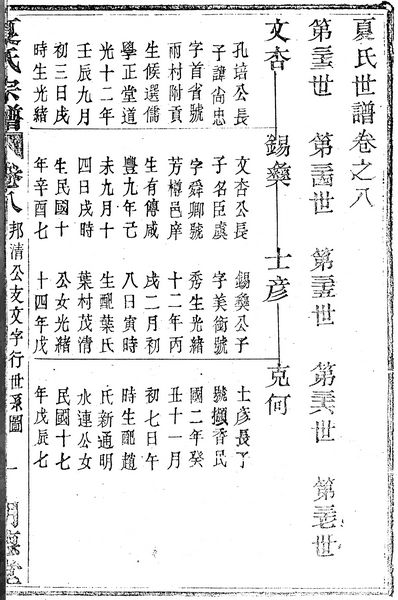 夏氏世譜卷之八
第二三世 第二四世 第二五世 第二六世 第二七世
文杏 錫燊 士彥 克何
孔培公長
子諱尚忠
字首省號
雨村附貢
生候選儒
學正堂道
光十二年
壬辰九月
初三日戌
時生光緒
文杏公長
子名臣虞
字舜卿號
芳樽邑庠
生有傳咸
豐九年己
未九月十
四日戌時
生民國十
年辛酉七
錫燊公子
字美銜號
秀生光緒
十二年丙
戌二月初
八日寅時
生配葉氏
葉村茂清
公女光緒
十四年戊
士彥長子
號擷香民
國二年癸
丑十一月
初七日午
時生配趙
氏新通明
水連公女
民國十七
年戊辰七
夏氏宗譜 卷八 邦清公支文字行世系圖 一